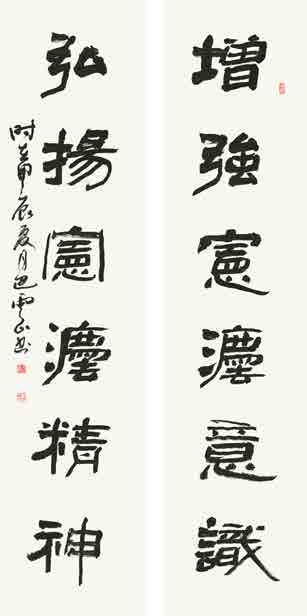 增強憲灋意識
弘揚憲灋精神
时在甲辰夏月